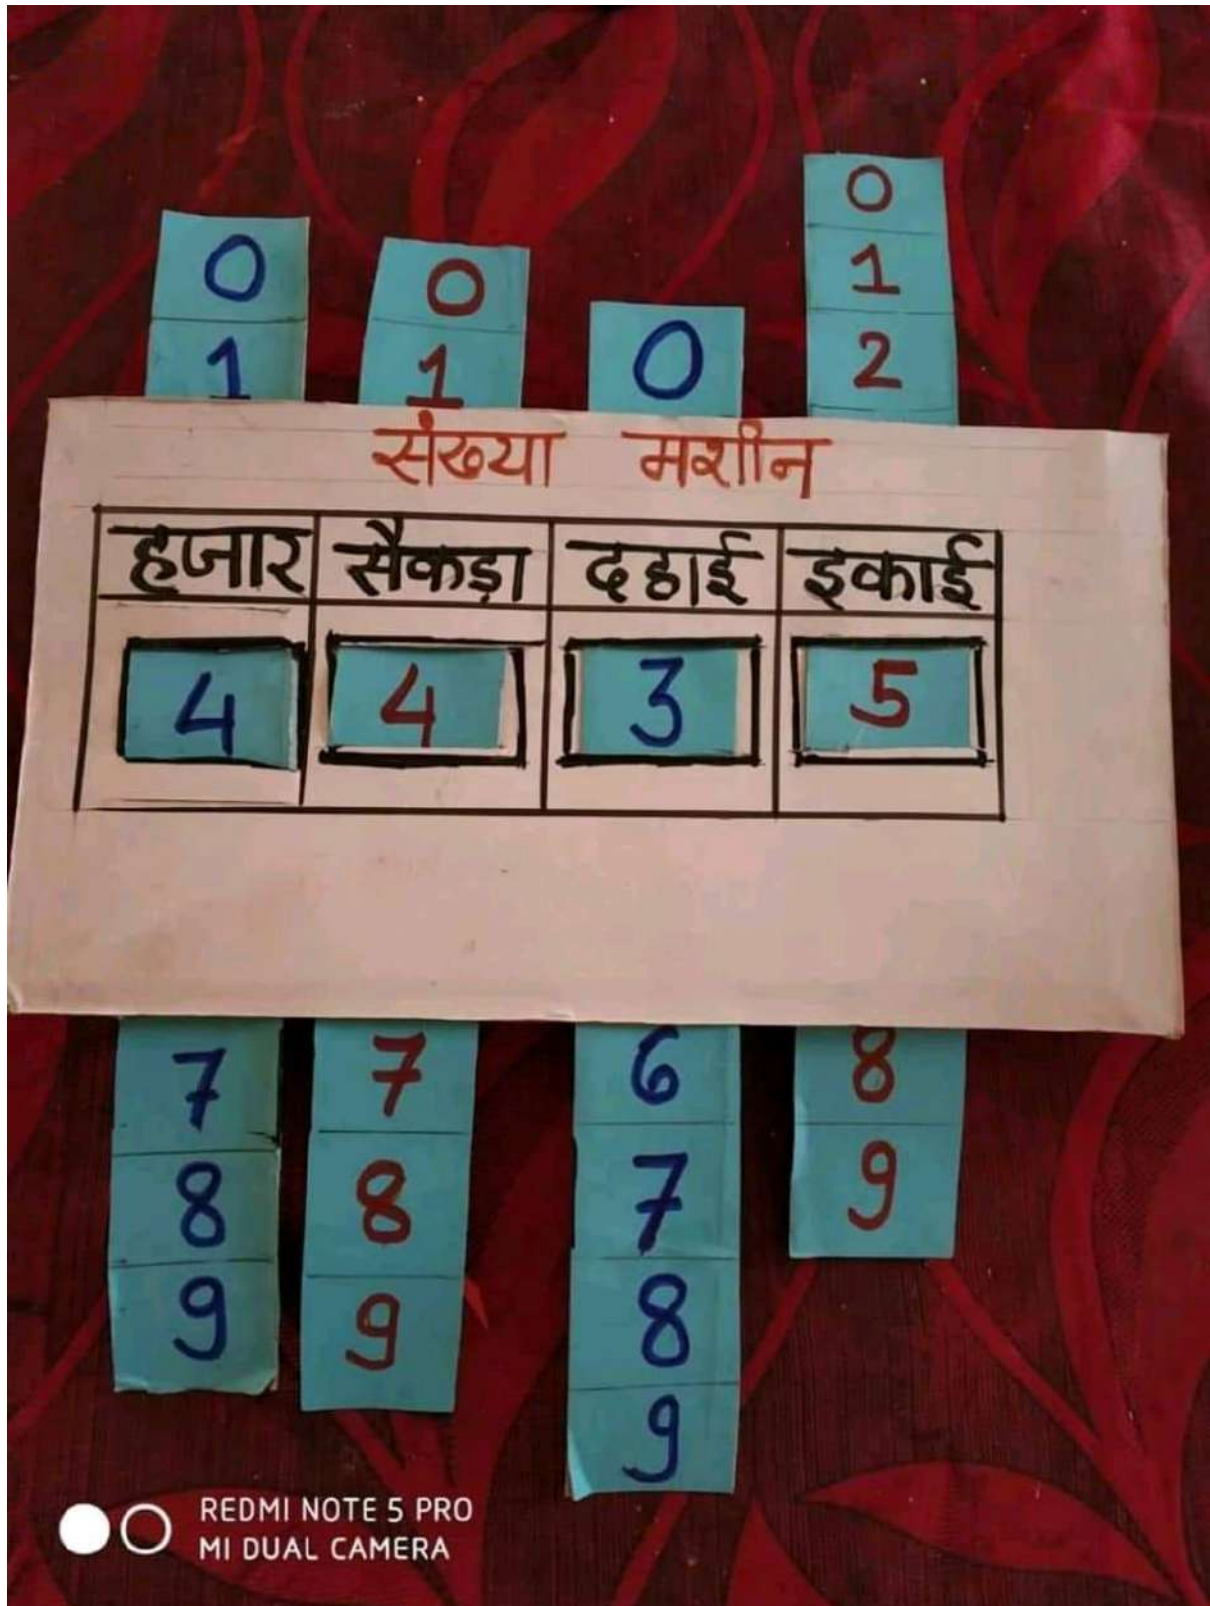 0
0 0 1
1 1 0 2
संख्या मशीन
हजार सैकड़ा दहाई इकाई
4 4 3 5
7 7 6 8
8 8 7 9
9 9 8
9
REDMI NOTE 5 PRO
MI DUAL CAMERA